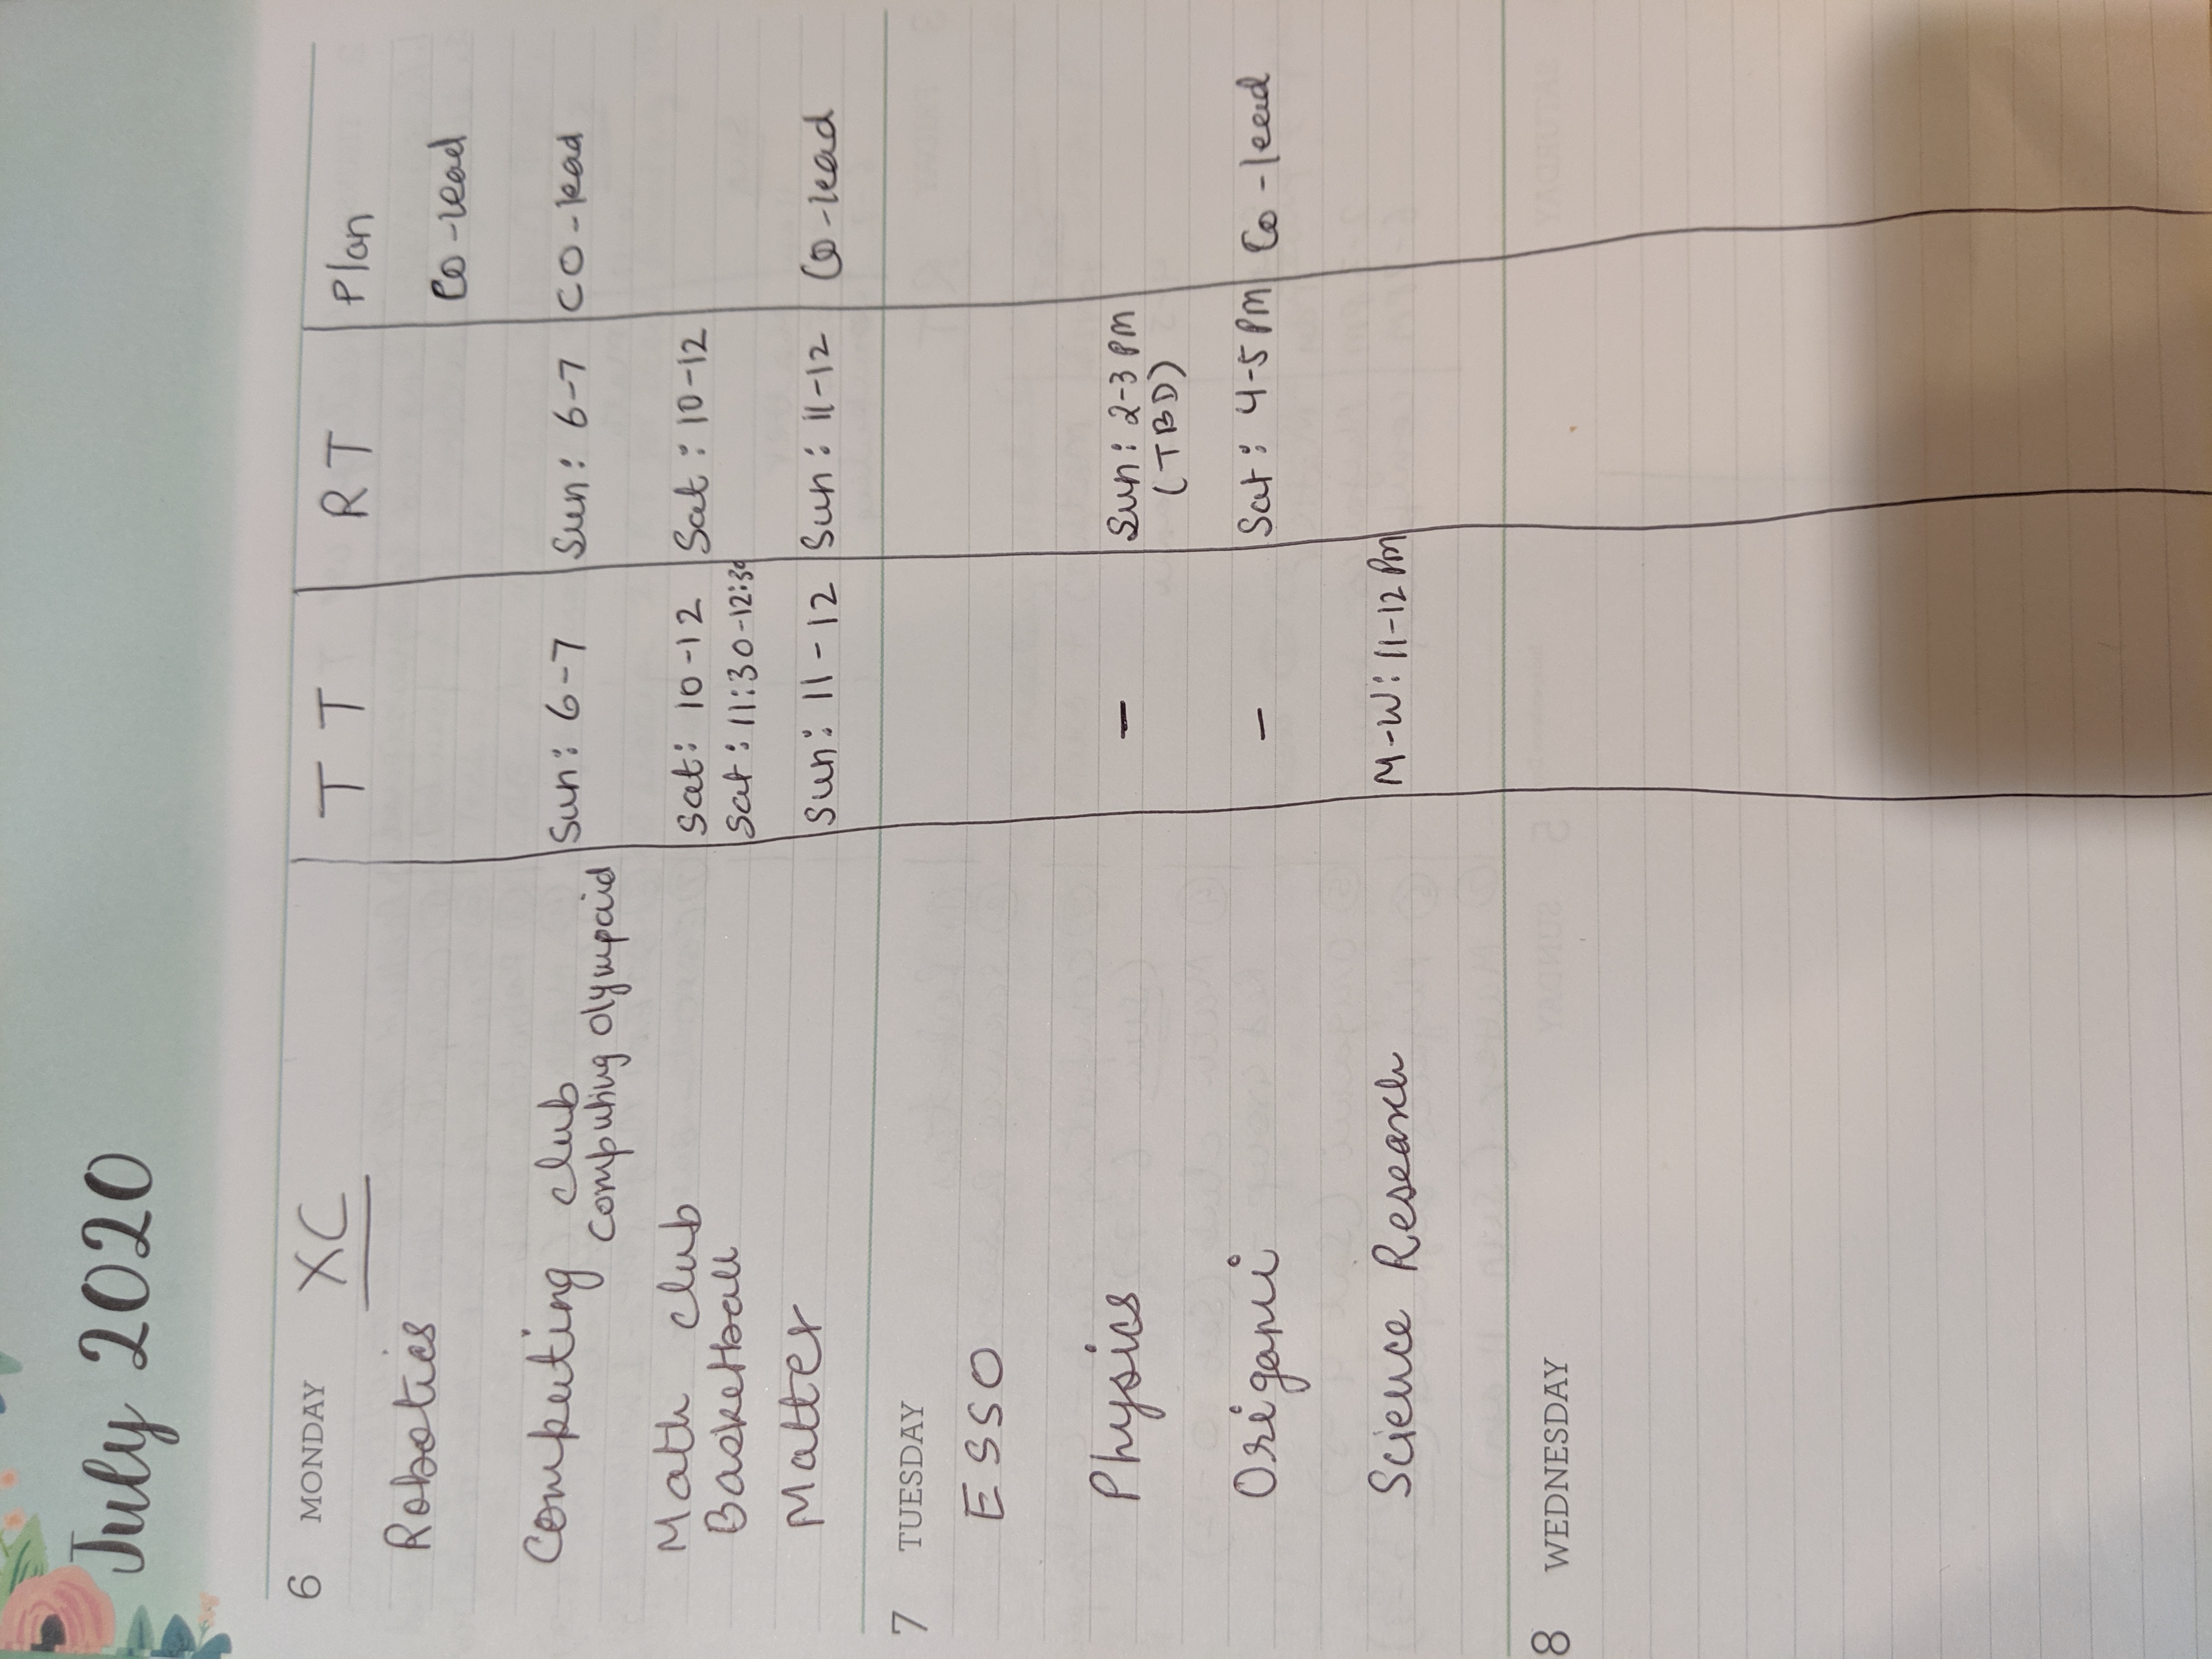 July 2020
6 MONDAY XC TT RT Plan
Robotics Co-lead
Computing club Sun: 6-7 Sun: 6-7 CO-lead
Computing Olympaid
Math club Sat: 10-12 Sat: 10-12
Basketball Sat: 11:30-12:30
Matter Sun: 11-12 Sun: 11-12 Co-lead
7 TUESDAY
ESSO
Physics - Sun: 2-3 PM
(TBD)
Origami - Sat: 4-5 PM Co-lead
Science Research M-W: 11-12 Pm
8 WEDNESDAY